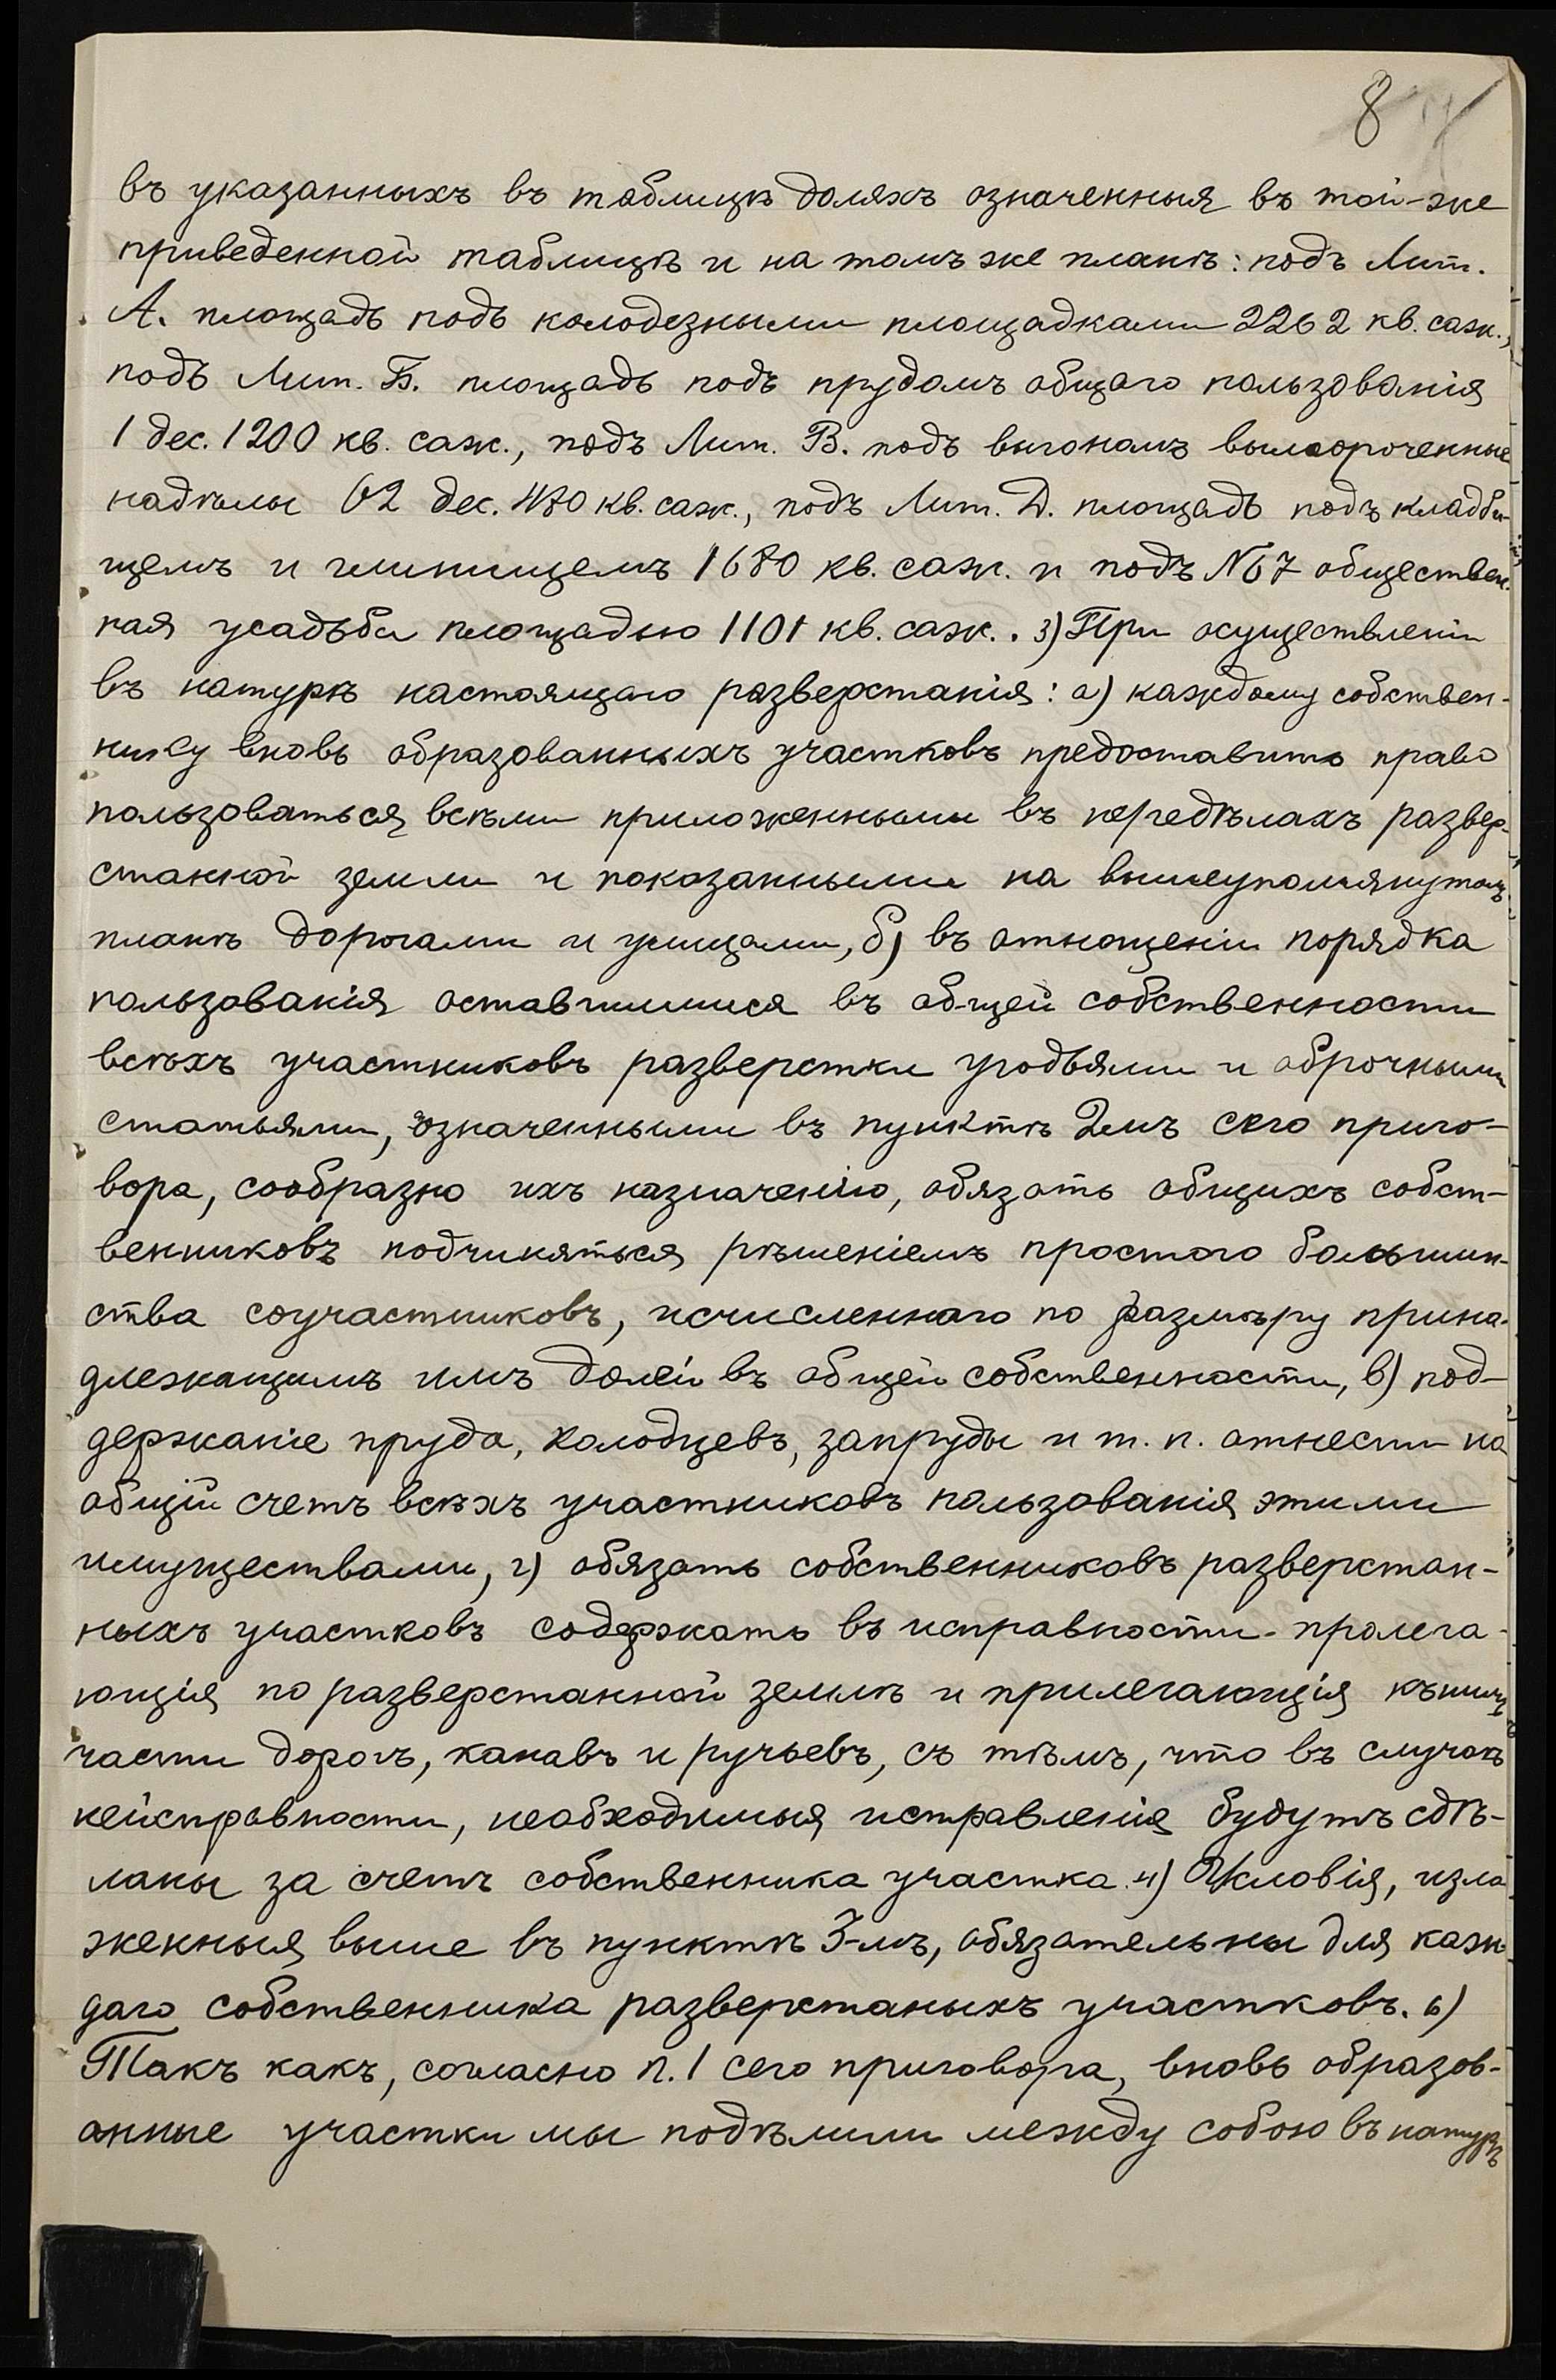 8
въ указанныхъ въ таблицѣ доляхъ означенныя въ той-же
приведенной таблицѣ и на томъ же планѣ: подъ Лит.
А. площадь подъ колодезными площадками 2262 кв. саж.,
подъ Лит. Б. площадь подъ прудомъ общаго пользованія
1 дес. 1200 кв. саж., подъ Лит. В. подъ выгономъ
надѣлы 62 дес. 480 кв. саж., подъ Лит. Д. площадь подъ кладби-
щемъ и глинищемъ 1680 кв. саж. и подъ №67 обществен-
ная усадьба площадью 1101 кв. саж.. 3) При осуществленіи
въ натурѣ настоящаго разверстанія: а) каждому собствен-
нику вновь образованныхъ участковъ предоставить право
пользоваться всѣми приложенными въ передѣлахъ развер-
станной земли и показанными на вышеупомянутомъ
планѣ дорогами и улицами, б) въ отношеніи порядка
пользованія оставшимися въ общей собственности
всѣхъ участниковъ разверстки угодьями и оброчными
статьями, означенными въ пунктѣ 2мъ сего приго-
вора, сообразно ихъ назначенію, обязать общихъ собст-
венниковъ подчиняться рѣшеніемъ простого большин-
ства соучастниковъ, исчисленнаго по размѣру прина-
длежащимъ имъ долей въ общей собственности, в) под-
держаніе пруда, колодцевъ, запруды и т. п. отнести на
общій счетъ всѣхъ участниковъ пользованія этими
имуществами, г) обязать собственниковъ разверстан-
ныхъ участковъ содержать въ исправности пролега-
ющія по разверстанной землѣ и прилегающія къ нимъ
части дорогъ, канавъ и ручьевъ, съ тѣмъ, что въ случаѣ
неисправности, необходимыя исправленія будутъ сдѣ-
ланы за счетъ собственника участка. 4) Условія, изло
женныя выше въ пунктѣ 3-мъ, обязательны для каж
даго собственника разверстаныхъ участковъ. 6)
Такъ какъ, согласно п. 1 сего приговора, вновь образов-
анные участки мы подѣлили между собою въ натурѣ